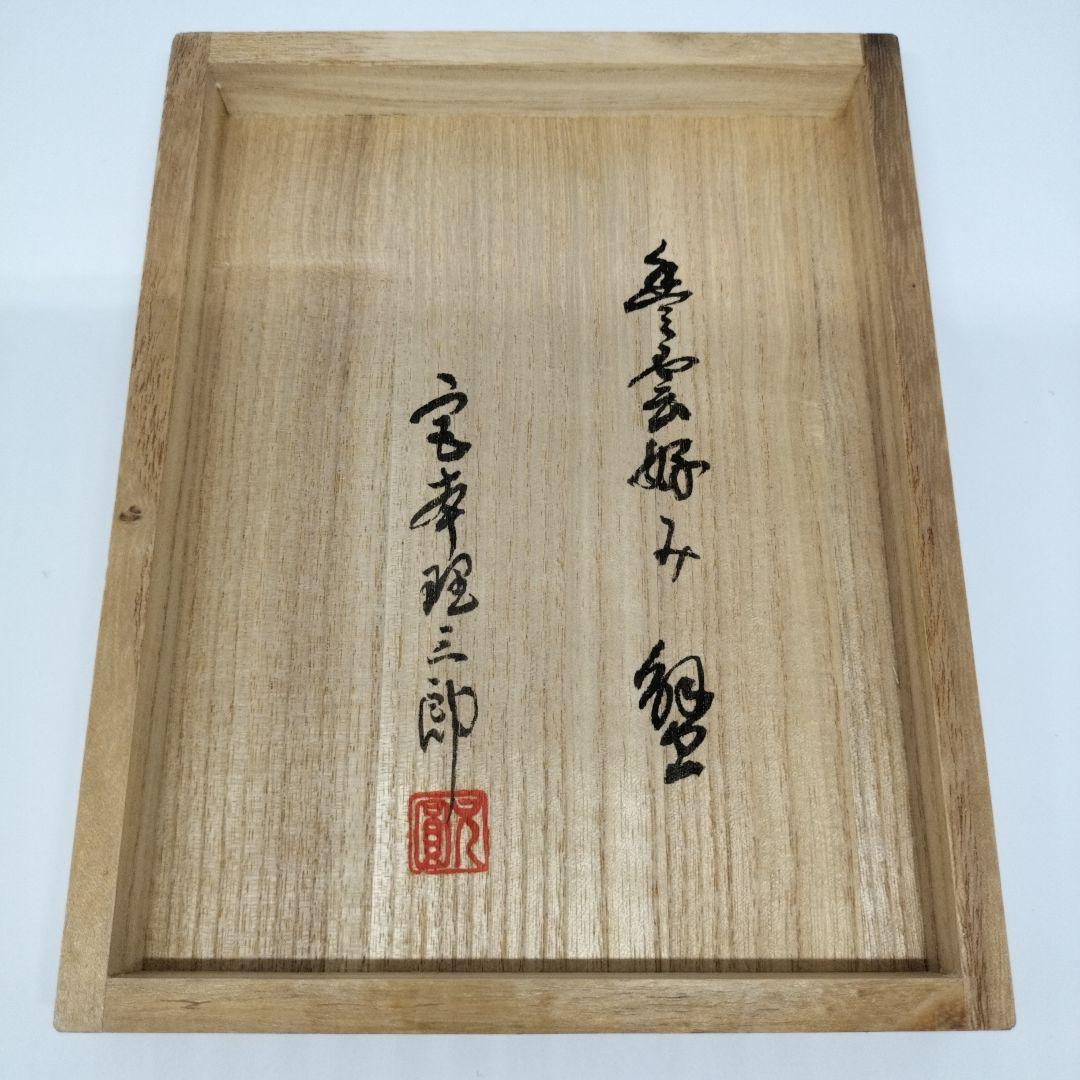 雲好み 蟹
宮本理三郎